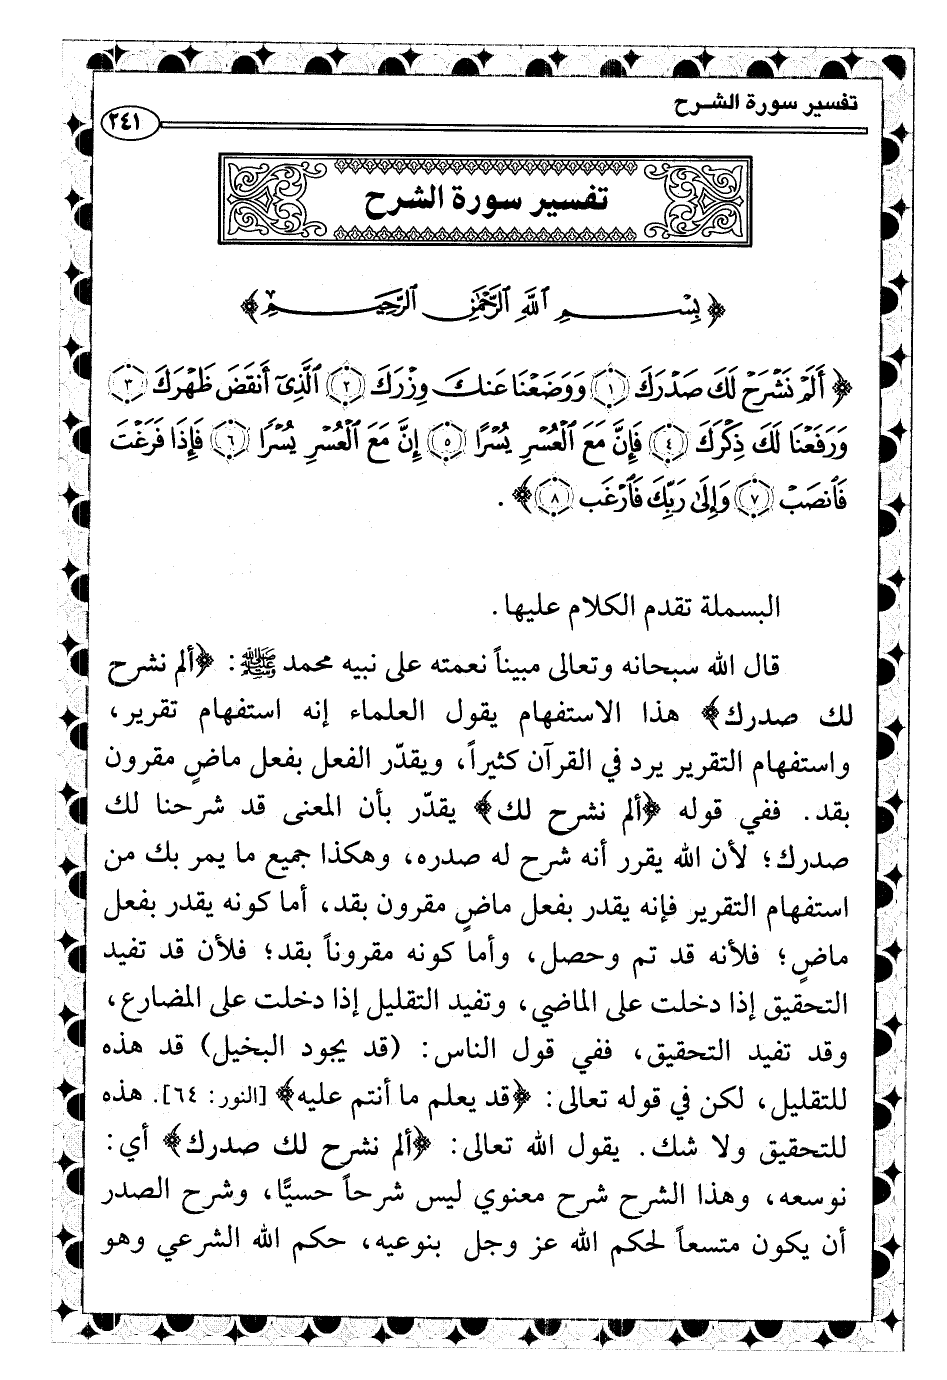 تفسير سورة الشـرح
٢٤١
تفسير سورة الشرح
﴿ بِسْمِ ٱللَّهِ ٱلرَّحْمَٰنِ ٱلرَّحِيمِ ﴾
﴿ أَلَمْ نَشْرَحْ لَكَ صَدْرَكَ ١ وَوَضَعْنَا عَنكَ وِزْرَكَ ٢ ٱلَّذِىٓ أَنقَضَ ظَهْرَكَ ٣
وَرَفَعْنَا لَكَ ذِكْرَكَ ٤ فَإِنَّ مَعَ ٱلْعُسْرِ يُسْرًا ٥ إِنَّ مَعَ ٱلْعُسْرِ يُسْرًا ٦ فَإِذَا فَرَغْتَ
فَٱنصَبْ ٧ وَإِلَىٰ رَبِّكَ فَٱرْغَب ٨ ﴾ .
البسملة تقدم الكلام عليها.
قال الله سبحانه وتعالى مبيناً نعمته على نبيه محمد ﷺ: ﴿ألم نشرح
لك صدرك﴾ هذا الاستفهام يقول العلماء إنه استفهام تقرير،
واستفهام التقرير يرد في القرآن كثيراً، ويقدّر الفعل بفعل ماضٍ مقرون
بقد. ففي قوله ﴿ألم نشرح لك﴾ يقدّر بأن المعنى قد شرحنا لك
صدرك؛ لأن الله يقرر أنه شرح له صدره، وهكذا جميع ما يمر بك من
استفهام التقرير فإنه يقدر بفعل ماضٍ مقرون بقد، أما كونه يقدر بفعل
ماضٍ؛ فلأنه قد تم وحصل، وأما كونه مقروناً بقد؛ فلأن قد تفيد
التحقيق إذا دخلت على الماضي، وتفيد التقليل إذا دخلت على المضارع،
وقد تفيد التحقيق، ففي قول الناس: (قد يجود البخيل) قد هذه
للتقليل، لكن في قوله تعالى: ﴿قد يعلم ما أنتم عليه﴾ [النور: ٦٤]. هذه
للتحقيق ولا شك. يقول الله تعالى: ﴿ألم نشرح لك صدرك﴾ أي:
نوسعه، وهذا الشرح شرح معنوي ليس شرحاً حسيًّا، وشرح الصدر
أن يكون متسعاً لحكم الله عز وجل بنوعيه، حكم الله الشرعي وهو